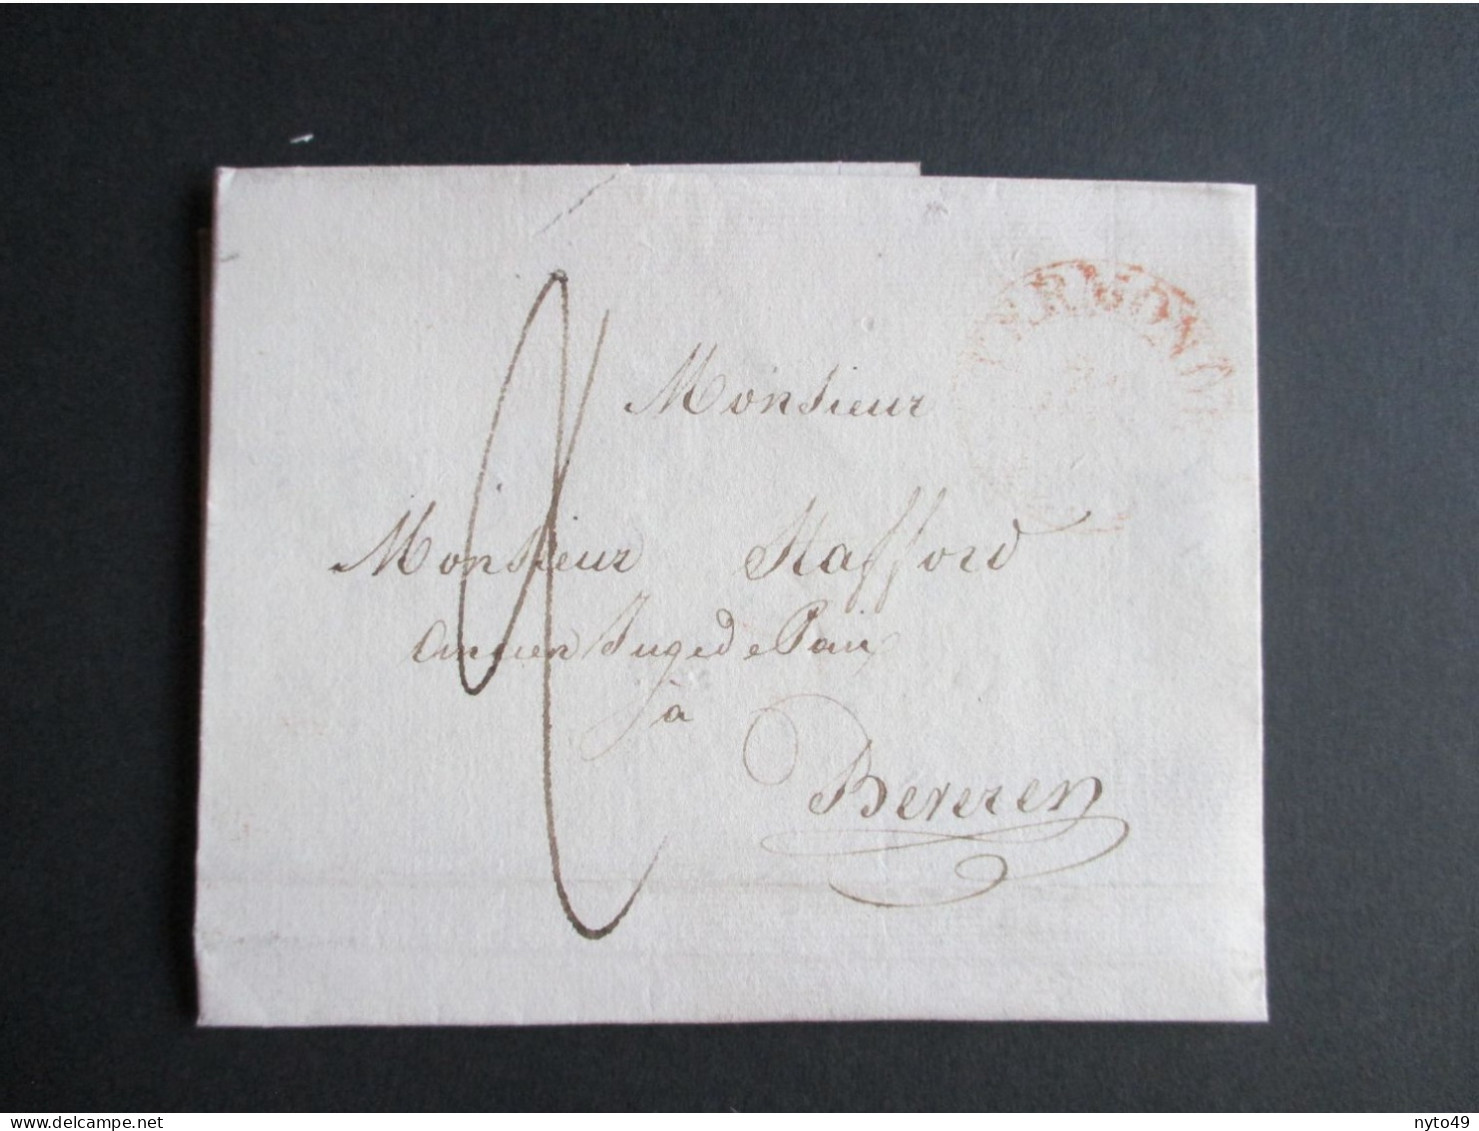 TERMONDE
Monsieur
Monsieur Stafford
ancien Juge de Paix
à
Béveren
delcampe.net
nyto49